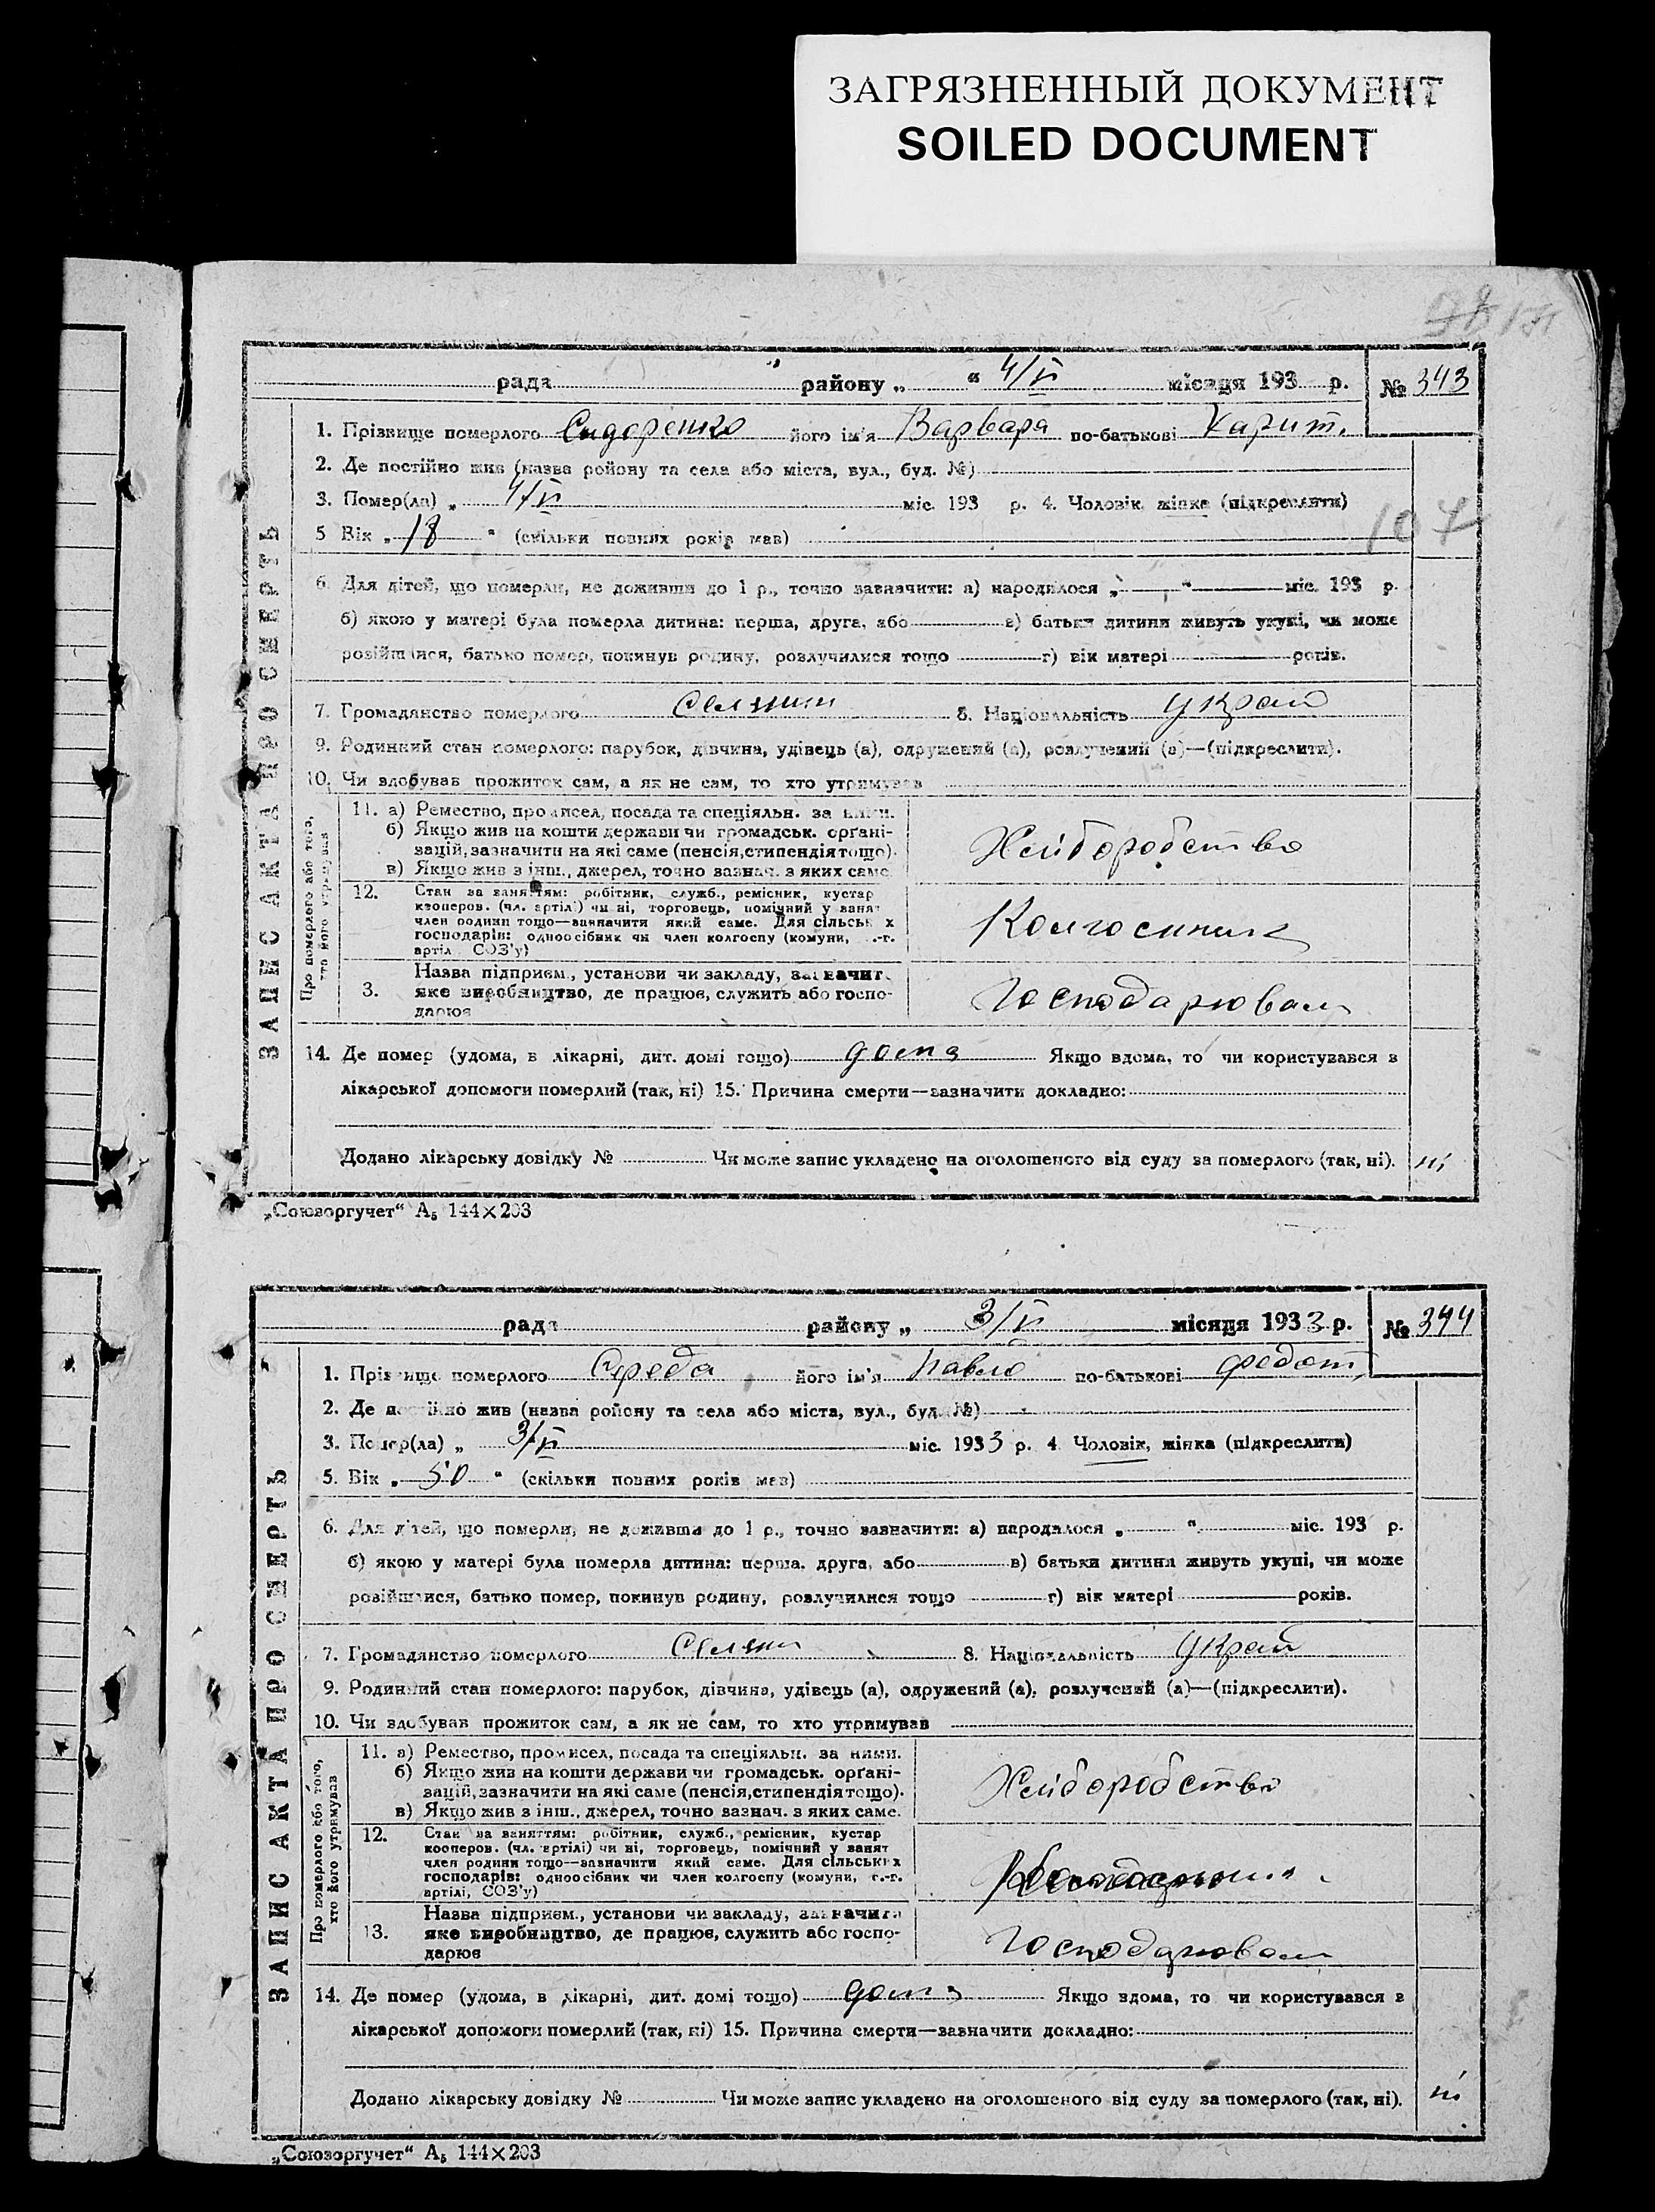 ЗАГРЯЗНЕННЫЙ ДОКУМЕНТ
SOILED DOCUMENT
рада району „ “ 4/VI місяця 193 р. № 343
ЗАПИС АКТА ПРО СМЕРТЬ
1. Прізвище померлого Сидоренко його ім'я Варвара по-батькові Харит.
2. Де постійно жив (назва району та села або міста, вул., буд. №)
3. Помер(ла) „ 4/VI міс. 193 р. 4. Чоловік, жінка (підкреслити)
107
5 Вік „ 18 “ (скільки повних років мав)
6. Для дітей, що померли, не доживши до 1 р., точно зазначити: а) народилося „ “ міс. 193 р.
б) якою у матері була померла дитина: перша, друга, або в) батьки дитини живуть укупі, чи може
розійшлися, батько помер, покинув родину, розлучилися тощо г) вік матері років.
7. Громадянство померлого селянин 8. Національність Украй
9. Родинний стан померлого: парубок, дівчина, удівець (а), одружений (а), розлучений (а)—(підкреслити).
10. Чи здобував прожиток сам, а як не сам, то хто утримував
Про померлого або того, хто його утримував
11. а) Ремество, промисел, посада та спеціяльн. за ними.
б) Якщо жив на кошти держави чи громадськ. органі-
зацій, зазначити на які саме (пенсія, стипендія тощо).
в) Якщо жив з інш., джерел, точно зазнач. з яких саме.
Хліборобство
12. Стан за заняттям: робітник, служб., ремісник, кустар
кооперов. (чл. артілі) чи ні, торговець, помічний у занят
член родини тощо—зазначити який саме. Для сільських
господарів: одноосібник чи член колгоспу (комуни, с.-г.
артіл СОЗ'у)
Колгоспник
3. Назва підприєм., установи чи закладу, зазначит
яке виробництво, де працює, служить або госпо-
дарює
Господарював
14. Де помер (удома, в лікарні, дит. домі тощо) дома Якщо вдома, то чи користувався з
лікарської допомоги померлий (так, ні) 15. Причина смерти—зазначити докладно:
Додано лікарську довідку № Чи може запис укладено на оголошеного від суду за померлого (так, ні). ні
„Союзоргучет“ А₅ 144×203
рада району „ 3/VI місяця 1933 р. № 344
ЗАПИС АКТА ПРО СМЕРТЬ
1. Прізвище померлого Середа його ім'я Павло по-батькові Федот.
2. Де постійно жив (назва району та села або міста, вул., буд. №)
3. Помер(ла) „ 3/VI міс. 1933 р. 4 Чоловік, жінка (підкреслити)
5. Вік „ 50 “ (скільки повних років мав)
6. Для дітей, що померли, не доживши до 1 р., точно зазначити: а) народилося „ “ міс. 193 р.
б) якою у матері була померла дитина: перша, друга, або в) батьки дитини живуть укупі, чи може
розійшлися, батько помер, покинув родину, розлучилися тощо г) вік матері років.
7. Громадянство померлого Селянин 8. Національність Украй
9. Родинний стан померлого: парубок, дівчина, удівець (а), одружений (а), розлучений (а)—(підкреслити).
10. Чи здобував прожиток сам, а як не сам, то хто утримував
Про померлого або того, хто його утримував
11. а) Ремество, промисел, посада та спеціяльн. за ними.
б) Якщо жив на кошти держави чи громадськ. органі-
зацій, зазначити на які саме (пенсія, стипендія тощо).
в) Якщо жив з інш., джерел, точно зазнач. з яких саме.
Хліборобство
12. Стан за заняттям: робітник, служб., ремісник, кустар
кооперов. (чл. артілі) чи ні, торговець, помічний у занят
член родини тощо—зазначити який саме. Для сільських
господарів: одноосібник чи член колгоспу (комуни, с.-г.
артілі, СОЗ'у)
13. Назва підприєм., установи чи закладу, зазначити
яке виробництво, де працює, служить або госпо-
дарює
Господарював
14. Де помер (удома, в лікарні, дит. домі тощо) дома Якщо вдома, то чи користувався з
лікарської допомоги померлий (так, ні) 15. Причина смерти—зазначити докладно:
Додано лікарську довідку № Чи може запис укладено на оголошеного від суду за померлого (так, ні). ні
„Союзоргучет“ А₅ 144×203